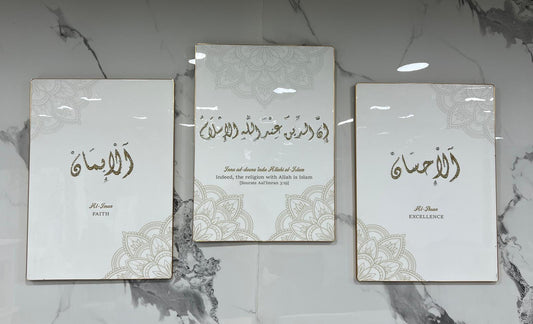 الإيمان
Al-Iman
FAITH
إن الدين عند الله الإسلام
Inna ad-deena inda Allahi al-Islam
Indeed, the religion with Allah is Islam
[Sourate Aal'Imran 3:19]
الإحسان
Al-Ihsan
EXCELLENCE